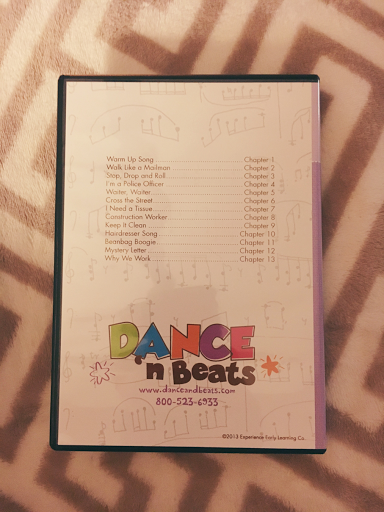 Warm Up Song Chapter 1
Walk Like a Mailman Chapter 2
Stop, Drop and Roll Chapter 3
I'm a Police Officer Chapter 4
Waiter, Waiter Chapter 5
Cross the Street Chapter 6
I Need a Tissue Chapter 7
Construction Worker Chapter 8
Keep It Clean Chapter 9
Hairdresser Song Chapter 10
Beanbag Boogie Chapter 11
Mystery Letter Chapter 12
Why We Work Chapter 13
DANCE
'n Beats
www.danceandbeats.com
800-523-6933
©2013 Experience Early Learning Co.